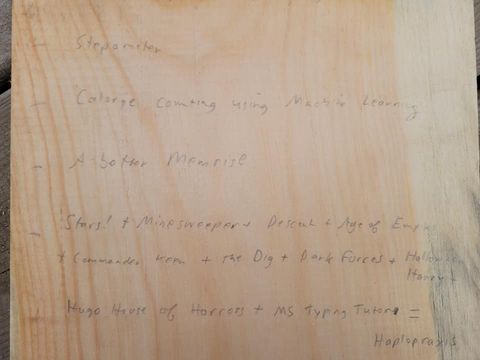 - Stepometer
- Calorie counting using Machine Learning
- A better Memrise
- Stars! + Minesweeper + Descent + Age of Emp
+ Commander Keen + the Dig + Dark Forces +
Honey +
Hugo House of Horrors + MS Typing Tutor =
Haplopraxis